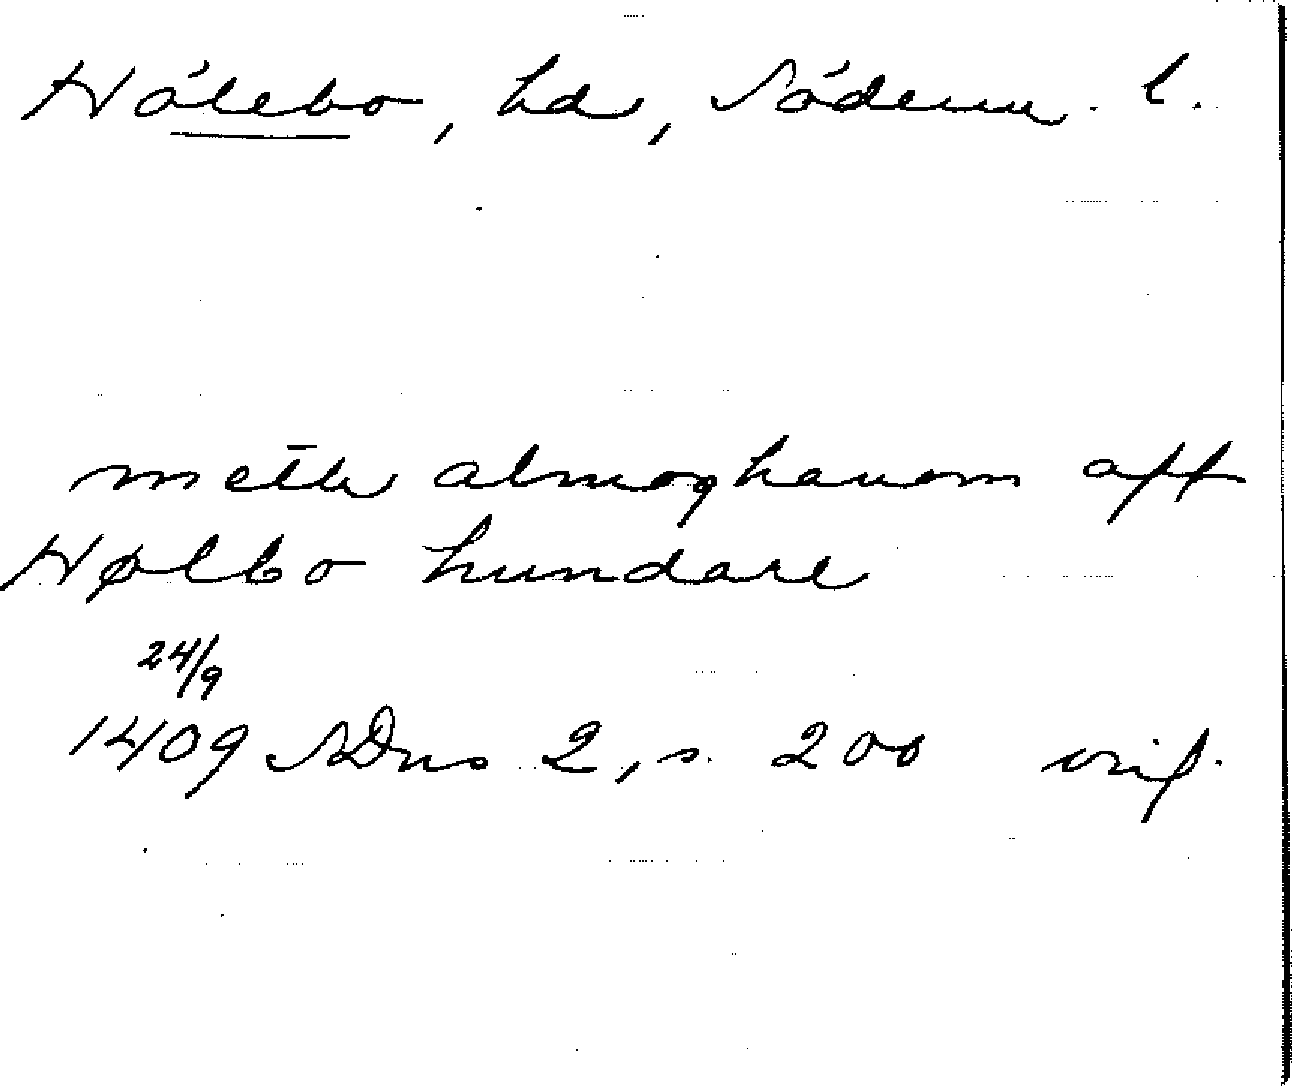 Hölebo, hd, Söderm. l.
metħ almoghanom aff
Hølbo hundare
24/9
1409 SDns 2, s. 200 orig.